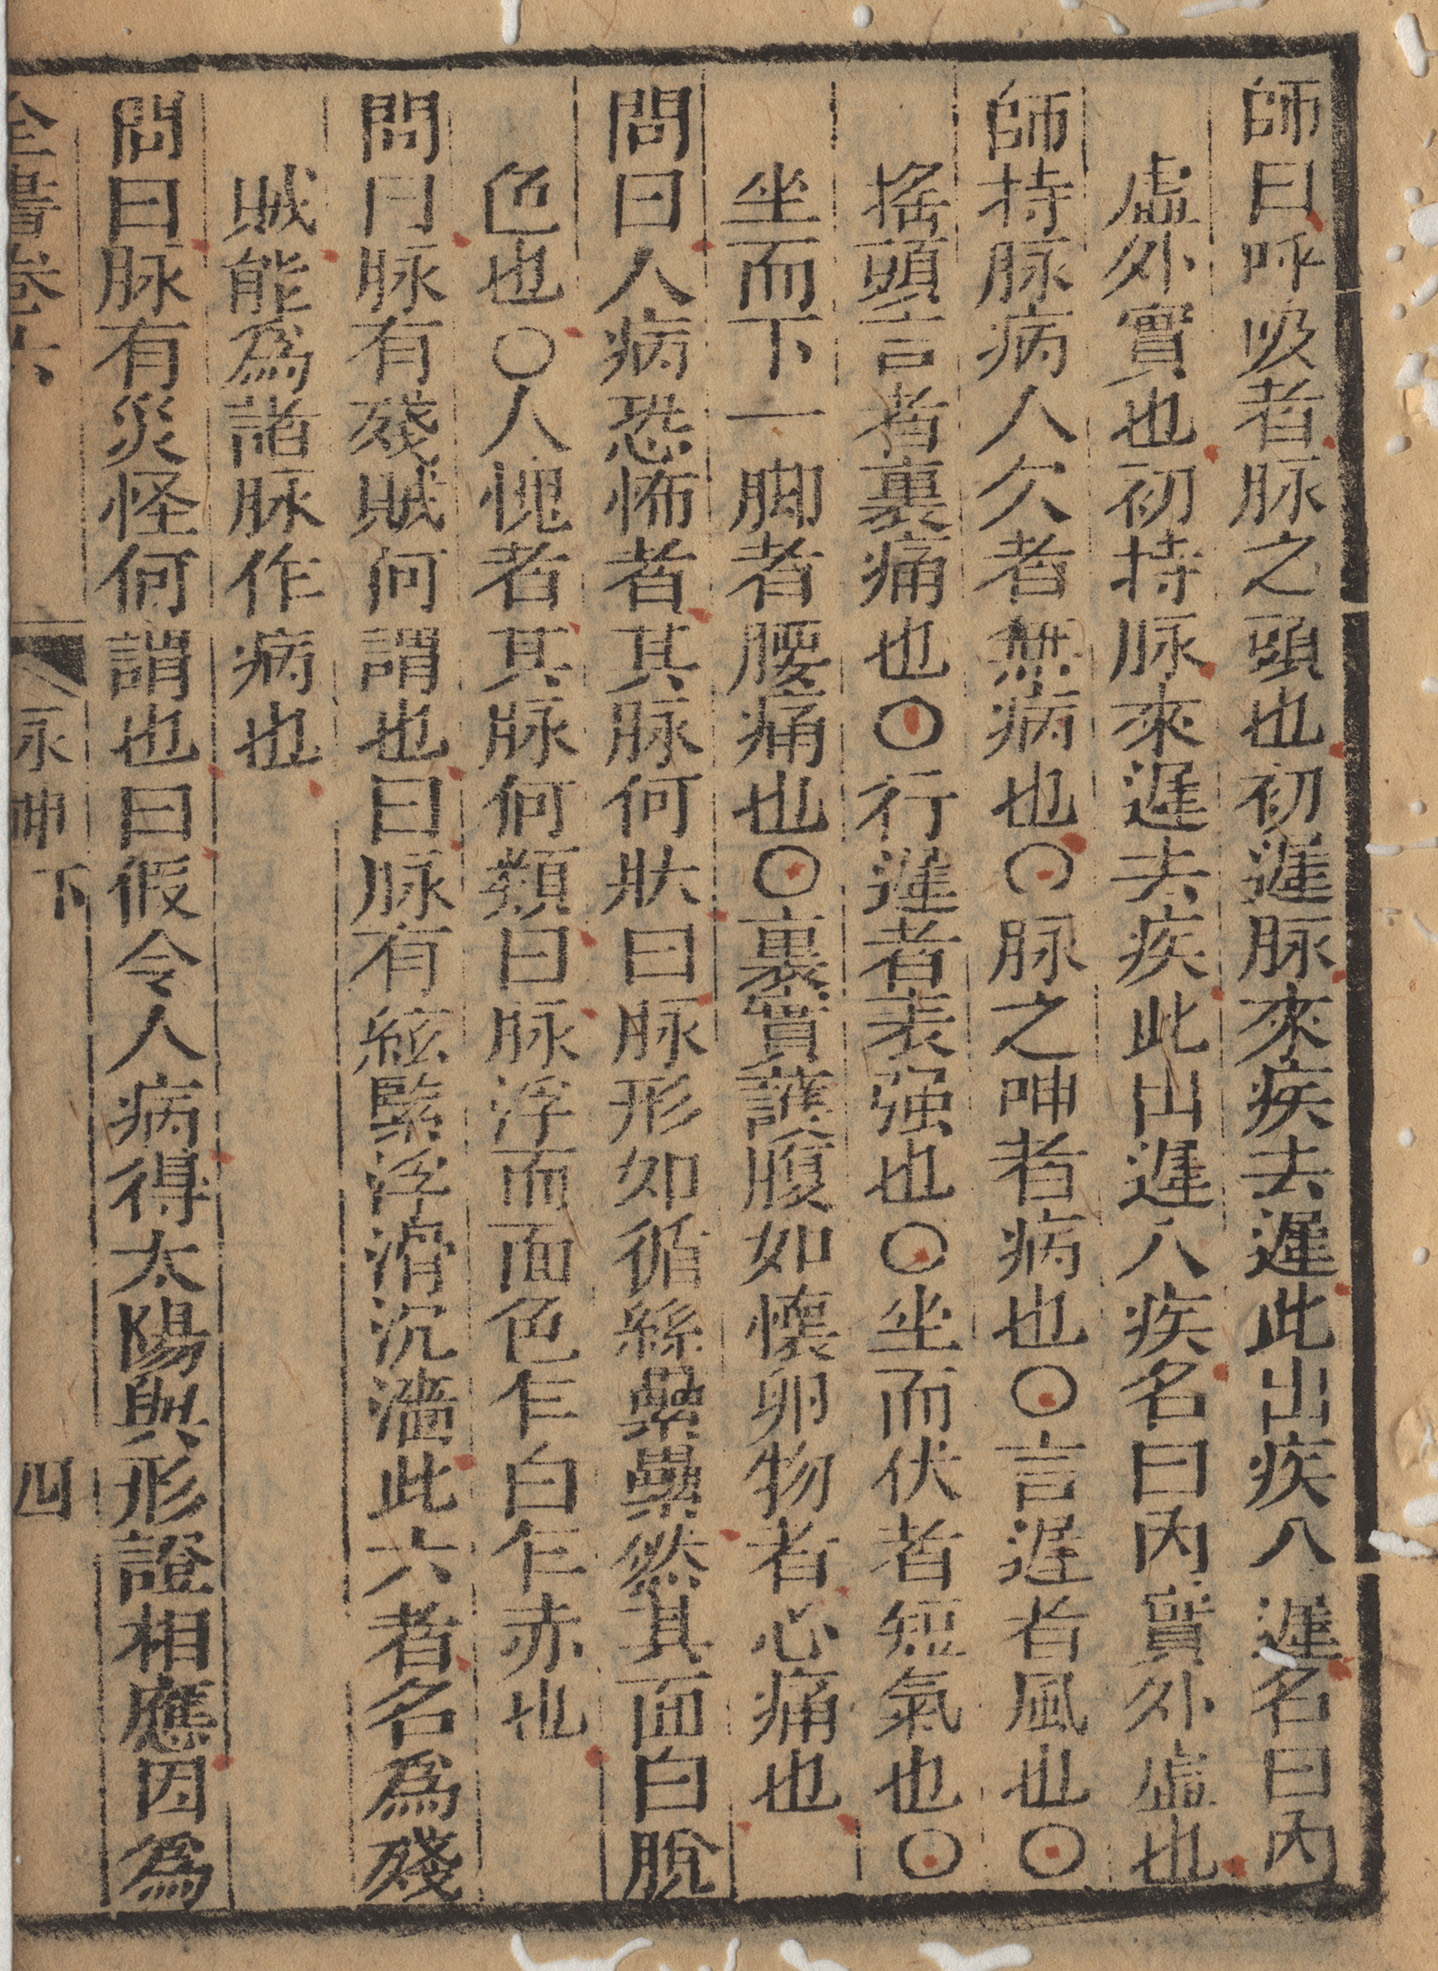 師曰呼吸者脉之頭也初遲脉來疾去遲此出疾入遲名曰內
虛外實也初持脉來遲去疾此出遲入疾名曰內實外虛也
師持脉病人欠者無病也〇脉之呻者病也〇言遲者風也〇
搖頭言者裏痛也〇行遲者表强也〇坐而伏者短氣也〇
坐而下一脚者腰痛也〇裏實護腹如懷卵物者心痛也
問曰人病恐怖者其脉何狀曰脉形如循絲纍纍然其面白脫
色也〇人愧者其脉何類曰脉浮而面色乍白乍赤也
問曰脉有殘賊何謂也曰脉有絃緊浮滑沉濇此六者名爲殘
賊能爲諸脉作病也
問曰脉有災怪何謂也曰假令人病得太陽與形證相應因爲
全書卷六 脉 下 四